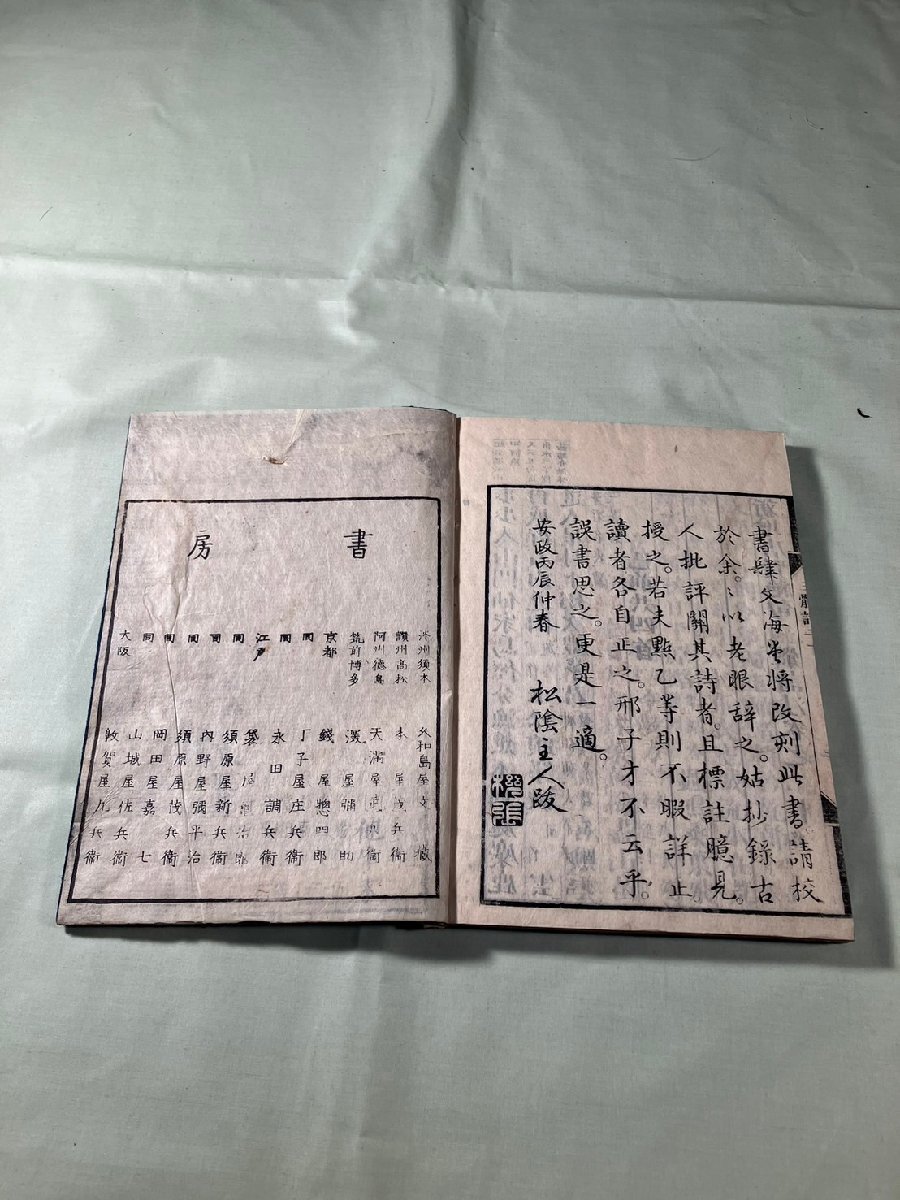 書肆文海堂將改刻此書請校
於余。〻以老眼辞之。姑抄錄古
人批評關其詩者。且標註臆見。
授之。若夫點乙等則不暇詳止。
讀者各自正之。邢子才不云乎。
誤書思之。更是一適。
安政丙辰仲春
松陰主人跋
書房
淡州須本
讚州高松 本屋 兵衛
阿州德島 天滿屋 兵衛
筑前博多
京都 錢屋惣四郎
同 丁子屋庄兵衛
同 永田調兵衛
江戸
同 須原屋新兵衛
同 内野屋彌平治
同 須原屋茂兵衛
同 岡田屋嘉七
同 山城屋佐兵衛
大阪 敦賀屋九兵衛